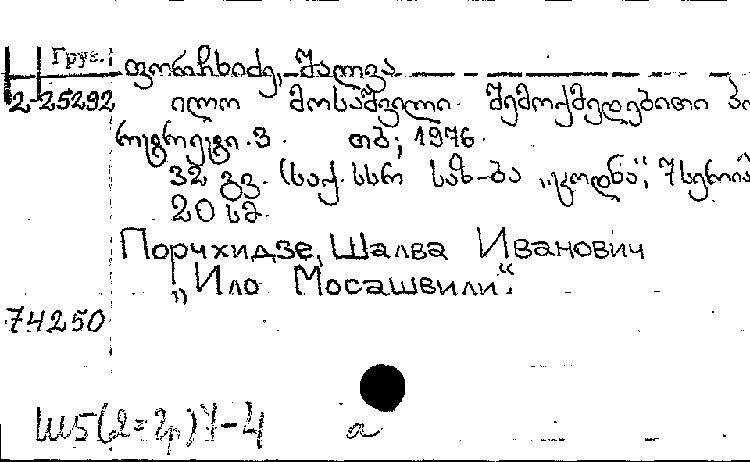 Груз.
ფორჩხიძე, შალვა
2-25292 ილო მოსაშვილი. შემოქმედებითი ბი
ოგრ. 3. თბ; 1976.
32 გვ. (საქ. სსრ საზ-ბა „ცოდნა“; 7 სერია
20 სმ.
Порчхидзе, Шалва Иванович
„Ило Мосашвили“.
74250
Ш5(2=2р)7-4 а